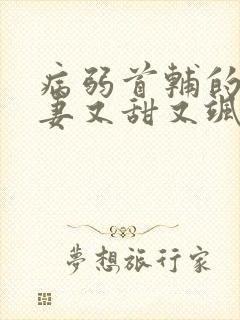 病弱首輔的
妻又甜又颯
夢想旅行家